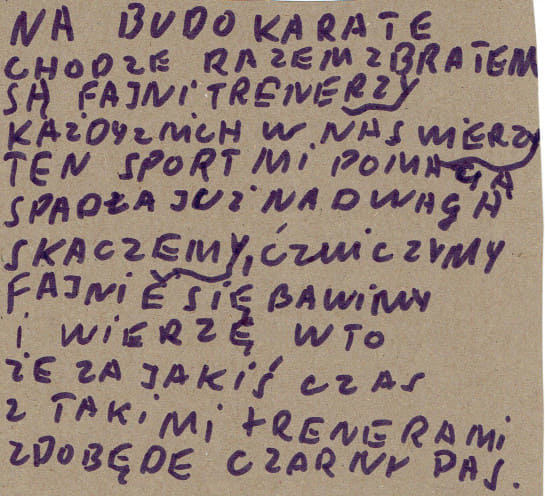 NA BUDO KARATE
CHODZE RAZEM Z BRATEM
SĄ FAJNI TRENERZY
KAŻDY Z NICH W NAS WIERZY
TEN SPORT MI POMAGA
SPADŁA JUŻ NADWAGA
SKACZEMY, ĆWICZYMY
FAJNIE SIĘ BAWIMY
I WIERZĘ W TO
ŻE ZA JAKIŚ CZAS
Z TAKIMI TRENERAMI
ZDOBĘDE CZARNY PAS.